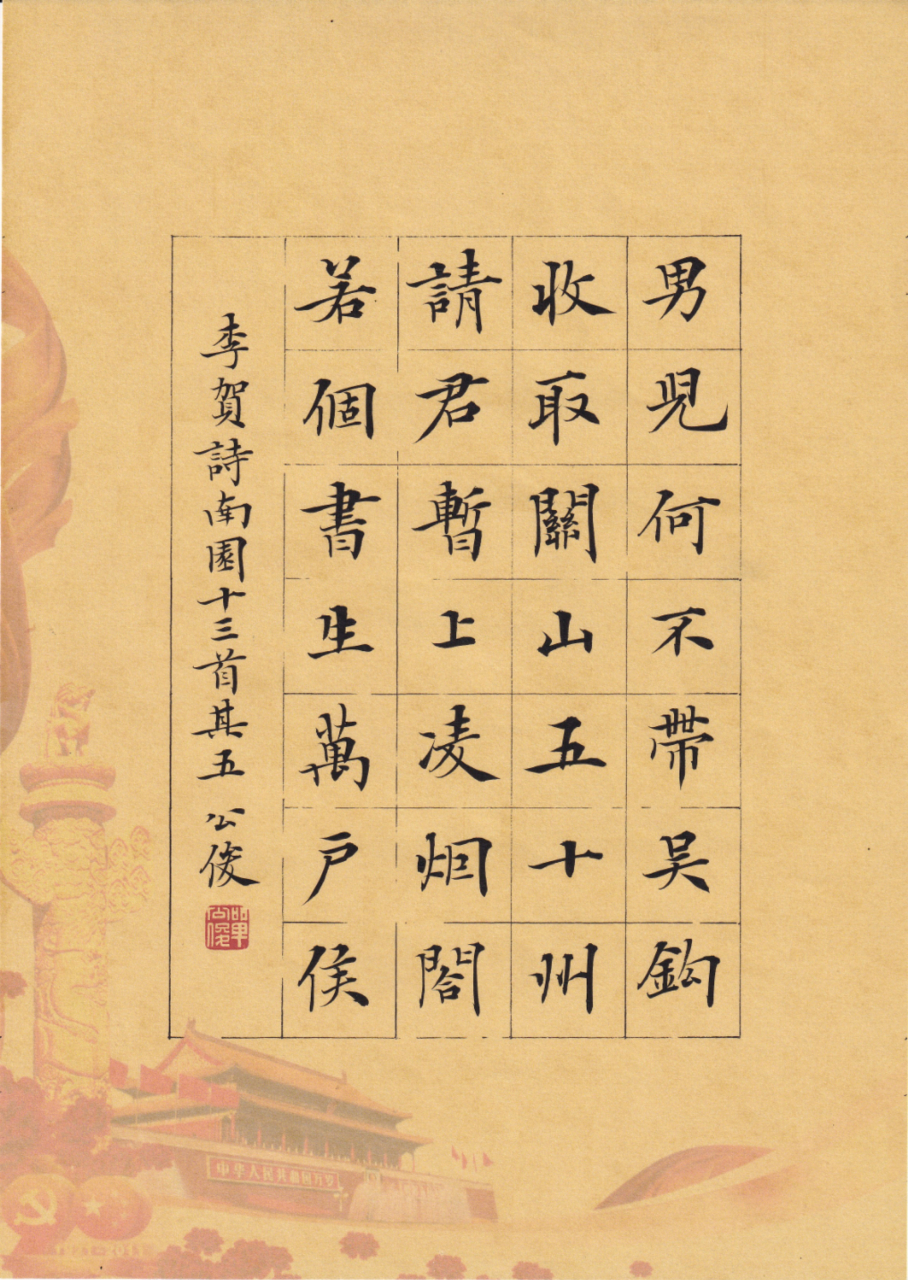 男兒何不帶吳鈎
收取關山五十州
請君暫上凌烟閣
若個書生萬戶侯
李賀詩南園十三首其五 公俊
中华人民共和国万岁